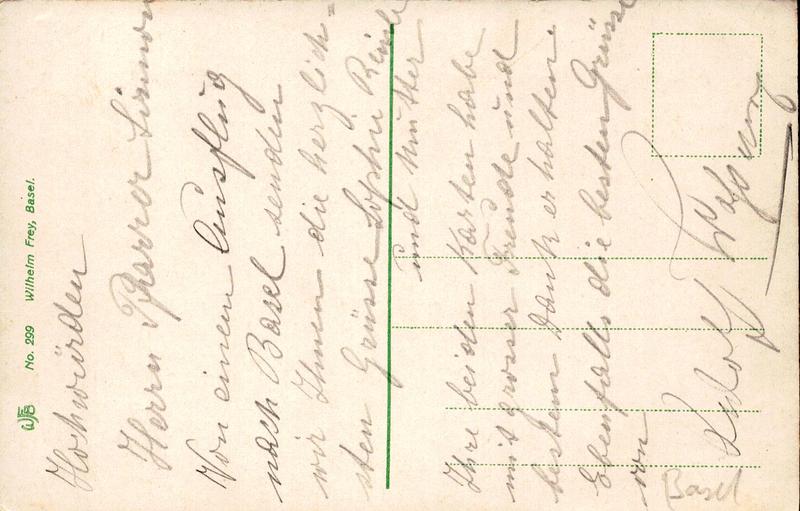 Hochwürden
Herrn Pfarrer
Von einem Ausflug
nach Basel senden
wir Ihnen die herzlich-
sten Grüsse Sophie
und Mutter
Ihre beiden Karten habe
mit grosser Freude und
bestem Dank erhalten.
Ebenfalls die besten Grüsse
von
Adolf
Basel
No. 299 Wilhelm Frey, Basel.